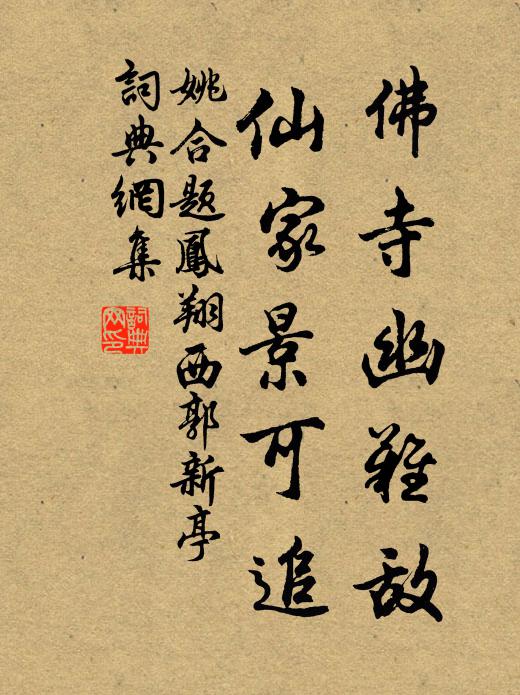 佛寺幽難敌
仙家景可追
姚合题鳳翔西郭新亭
詞典網集
詞典网印